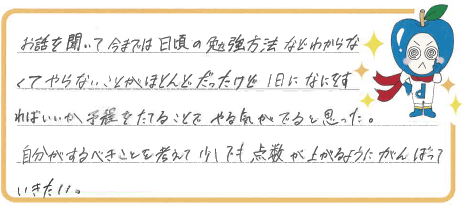 お話を聞いて今までは日頃の勉強方法などわからな
くてやらないことがほとんどだったけど1日になにをす
ればいいか予程をたてることでやる気がでると思った。
自分がするべきことを考えて少しでも点数が上がるようにがんばって
いきたい。